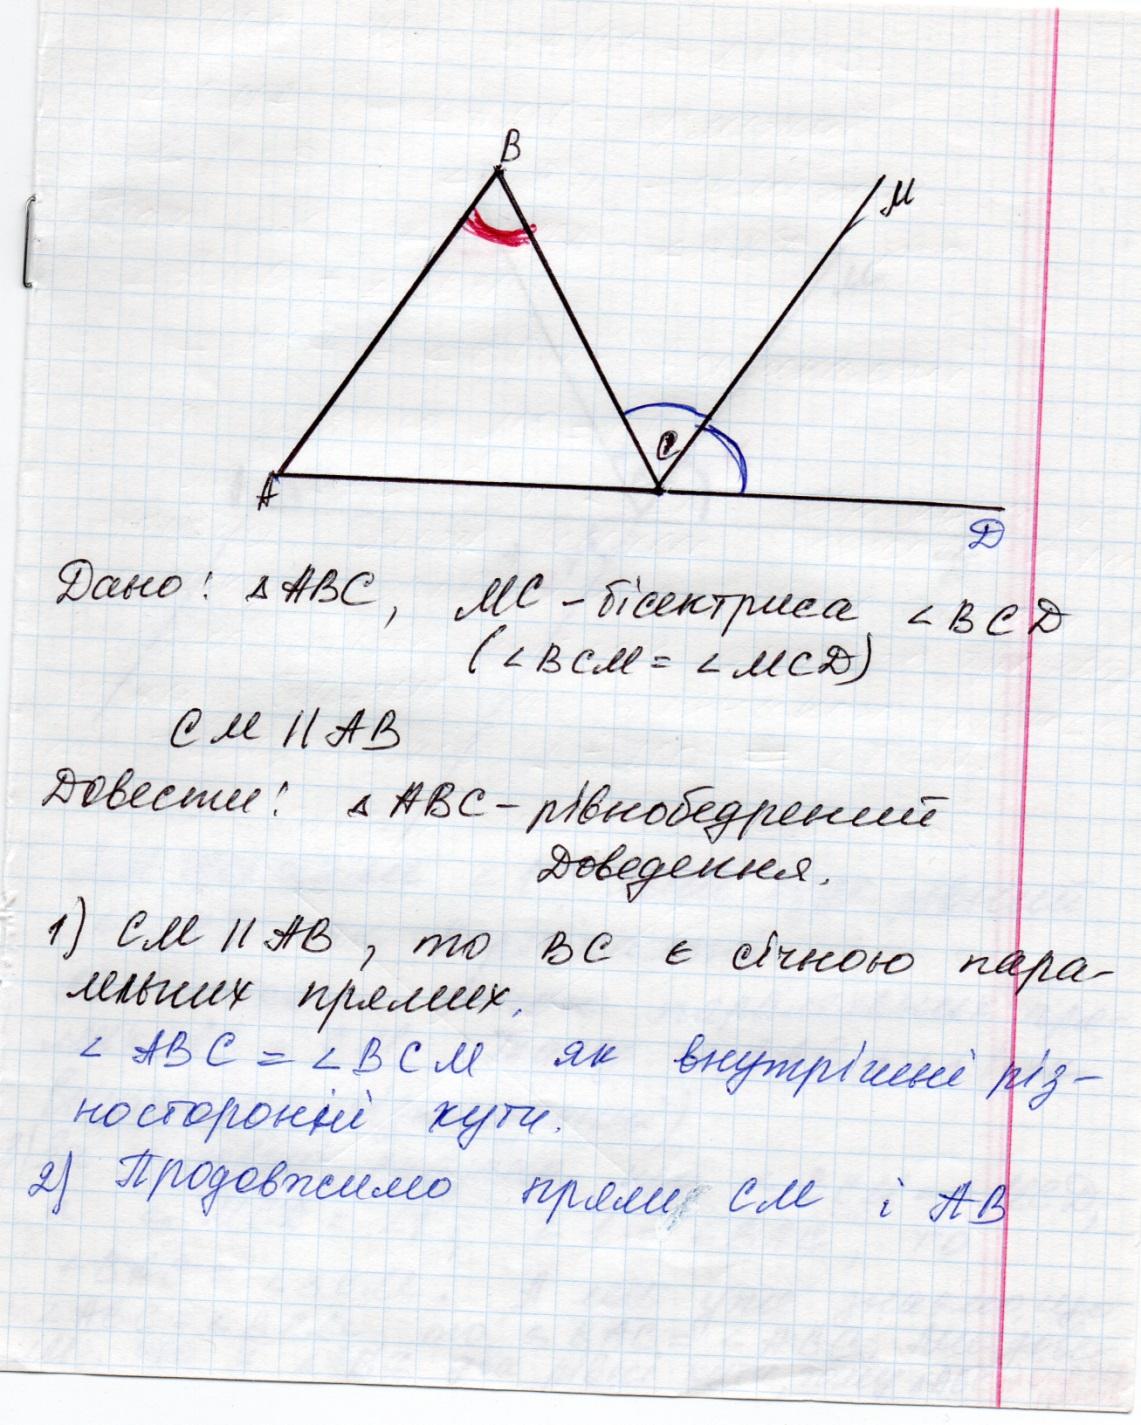 B
M
C
A
D
Дано: △ABC, MC – бісектриса ∠BCD
(∠BCM = ∠MCD)
CM || AB
Довести: △ABC – рівнобедрений
Доведення.
1) CM || AB, то BC є січною пара-
лельних прямих.
∠ABC = ∠BCM як внутрішні різ-
носторонні кути.
2) Продовжимо прямі CM і AB